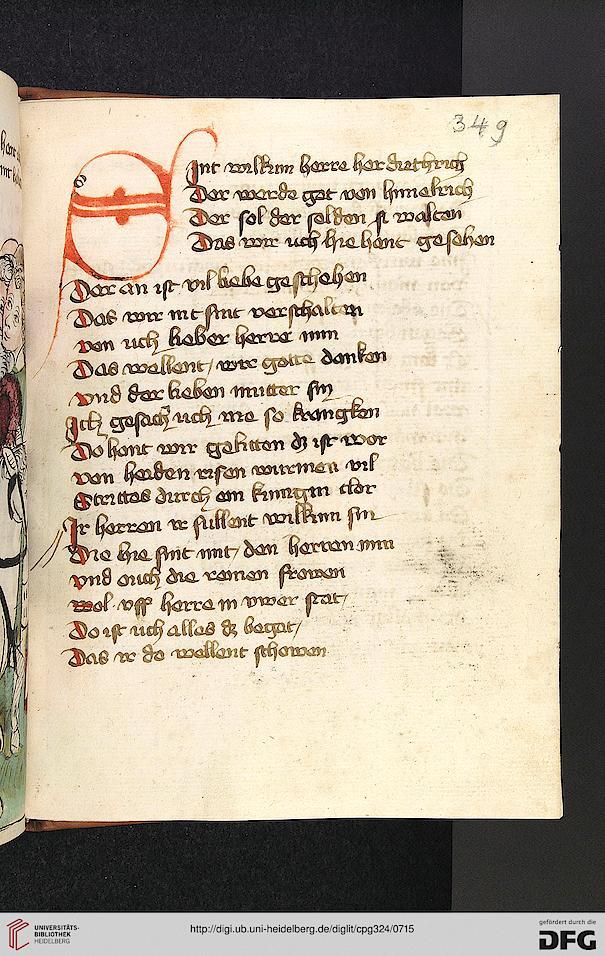 349
S Jnt wilkum herre her dietherich
Der werde got von himelrich
Der sol der selden si walten
Das wir uch hie hent gesehen
Der an ist vil liebe geschehen
Das wir nit sint verschalten
von uch lieber herre min
Das wellent wir gotte danken
vnd der lieben mutter sin
Ich gesach uch nie so krangken
Do hant wir gelitten dz ist wor
von heiden risen wurmen vil
Strittes durch ein kunigin clor
Jr herren ir sullent wilkum sin
Die hie sint mit den herren min
vnd ouch die reinen frowen
wol vff herre in vwer stat
Do ist uch alles dz begat
Das ir do wellent schowen
UNIVERSITÄTS-
BIBLIOTHEK
HEIDELBERG
http://digi.ub.uni-heidelberg.de/diglit/cpg324/0715
gefördert durch die
DFG